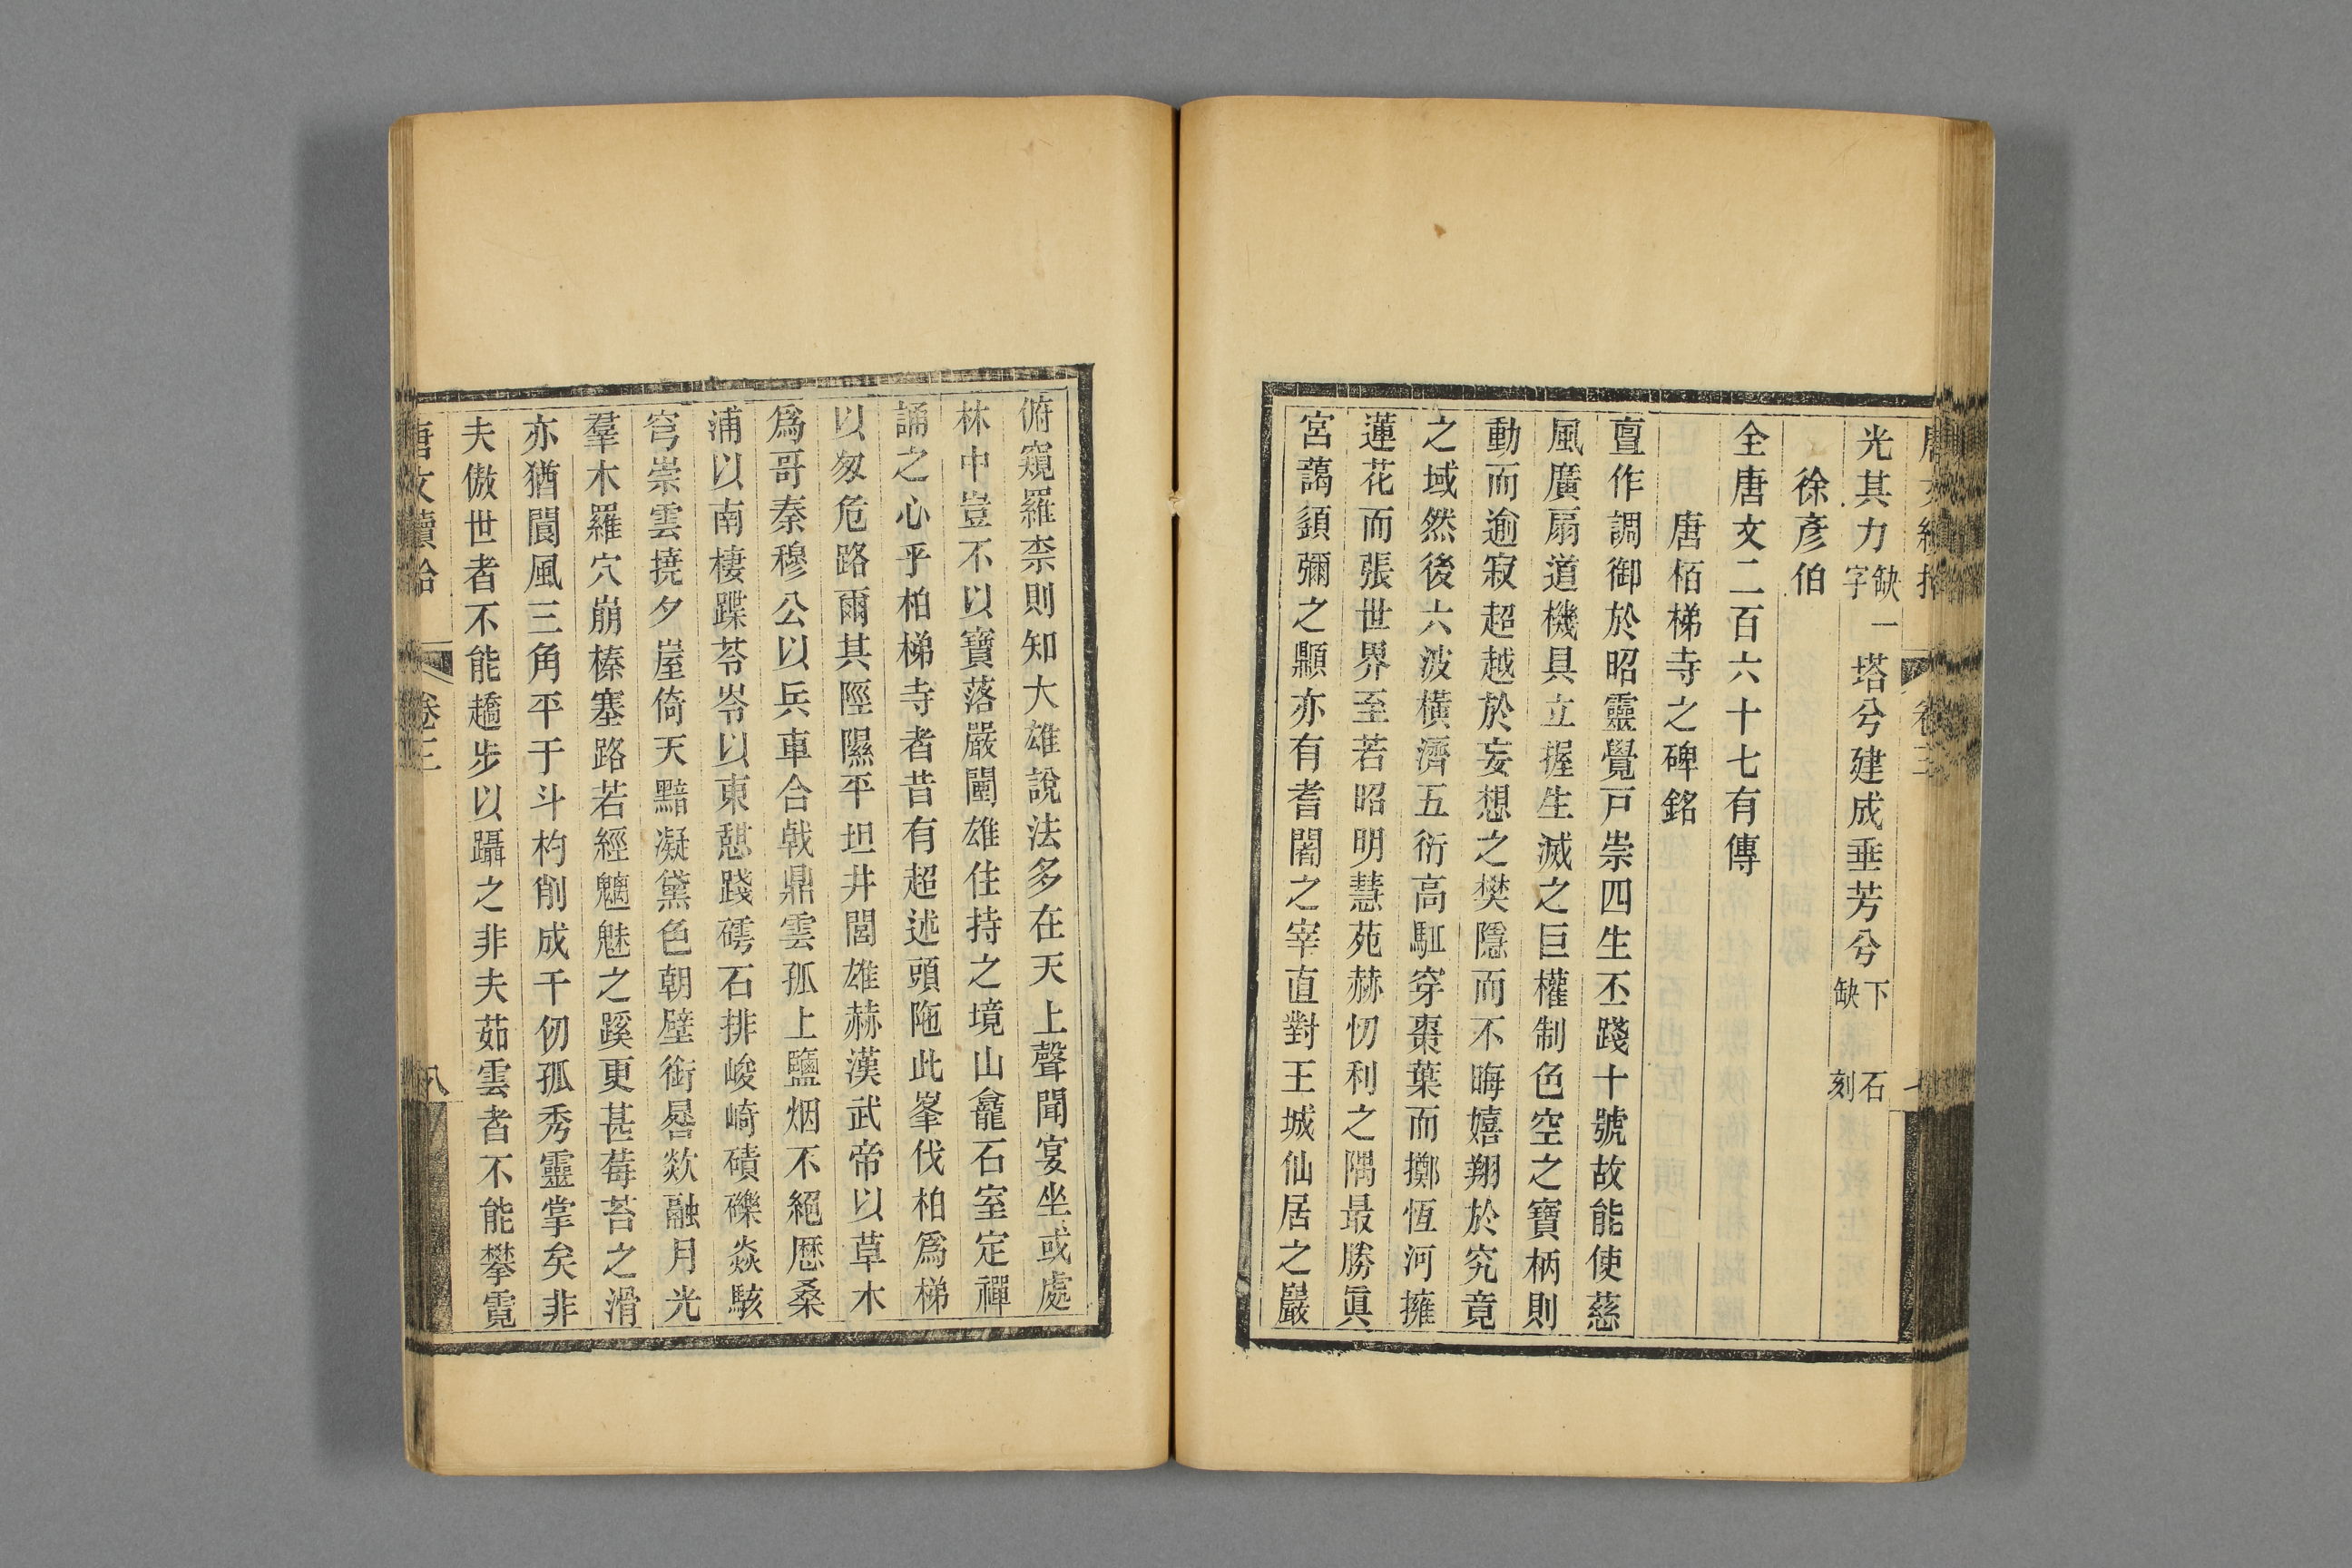 唐文續拾 卷三 七
光其力缺一字塔兮建成垂芳兮下缺 石刻
徐彥伯
全唐文二百六十七有傳
唐栢梯寺之碑銘
亶作調御於昭靈覺戸崇四生丕踐十號故能使慈
風廣扇道機具立握生滅之巨權制色空之寶柄則
動而逾寂超越於妄想之樊隱而不晦嬉翔於究竟
之域然後六波橫濟五衍高駈穿棗葉而擲恆河擁
蓮花而張世界至若昭明慧苑赫忉利之隅最勝眞
宮藹顉彌之顯亦有耆闍之宰直對王城仙居之巖
俯窺羅柰則知大雄說法多在天上聲聞宴坐或處
林中豈不以寶落嚴闉雄住持之境山龕石室定禪
誦之心乎柏梯寺者昔有超述頭陁此峯伐柏爲梯
以匇危路爾其陘隰平坦井閭雄赫漢武帝以草木
爲哥秦穆公以兵車合戟鼎雲孤上鹽烟不絕厯桑
浦以南棲蹀苓岺以東憇踐磿石排峻崎磧礫焱駭
穹崇雲撓夕崖倚天黯凝黛色朝壁銜晷欻融月光
羣木羅穴崩榛塞路若經魑魅之蹊更甚莓苔之滑
亦猶閬風三角平于斗杓削成千仞孤秀靈掌矣非
夫傲世者不能趫步以躡之非夫茹雲者不能攀霓
唐文續拾 卷三 八